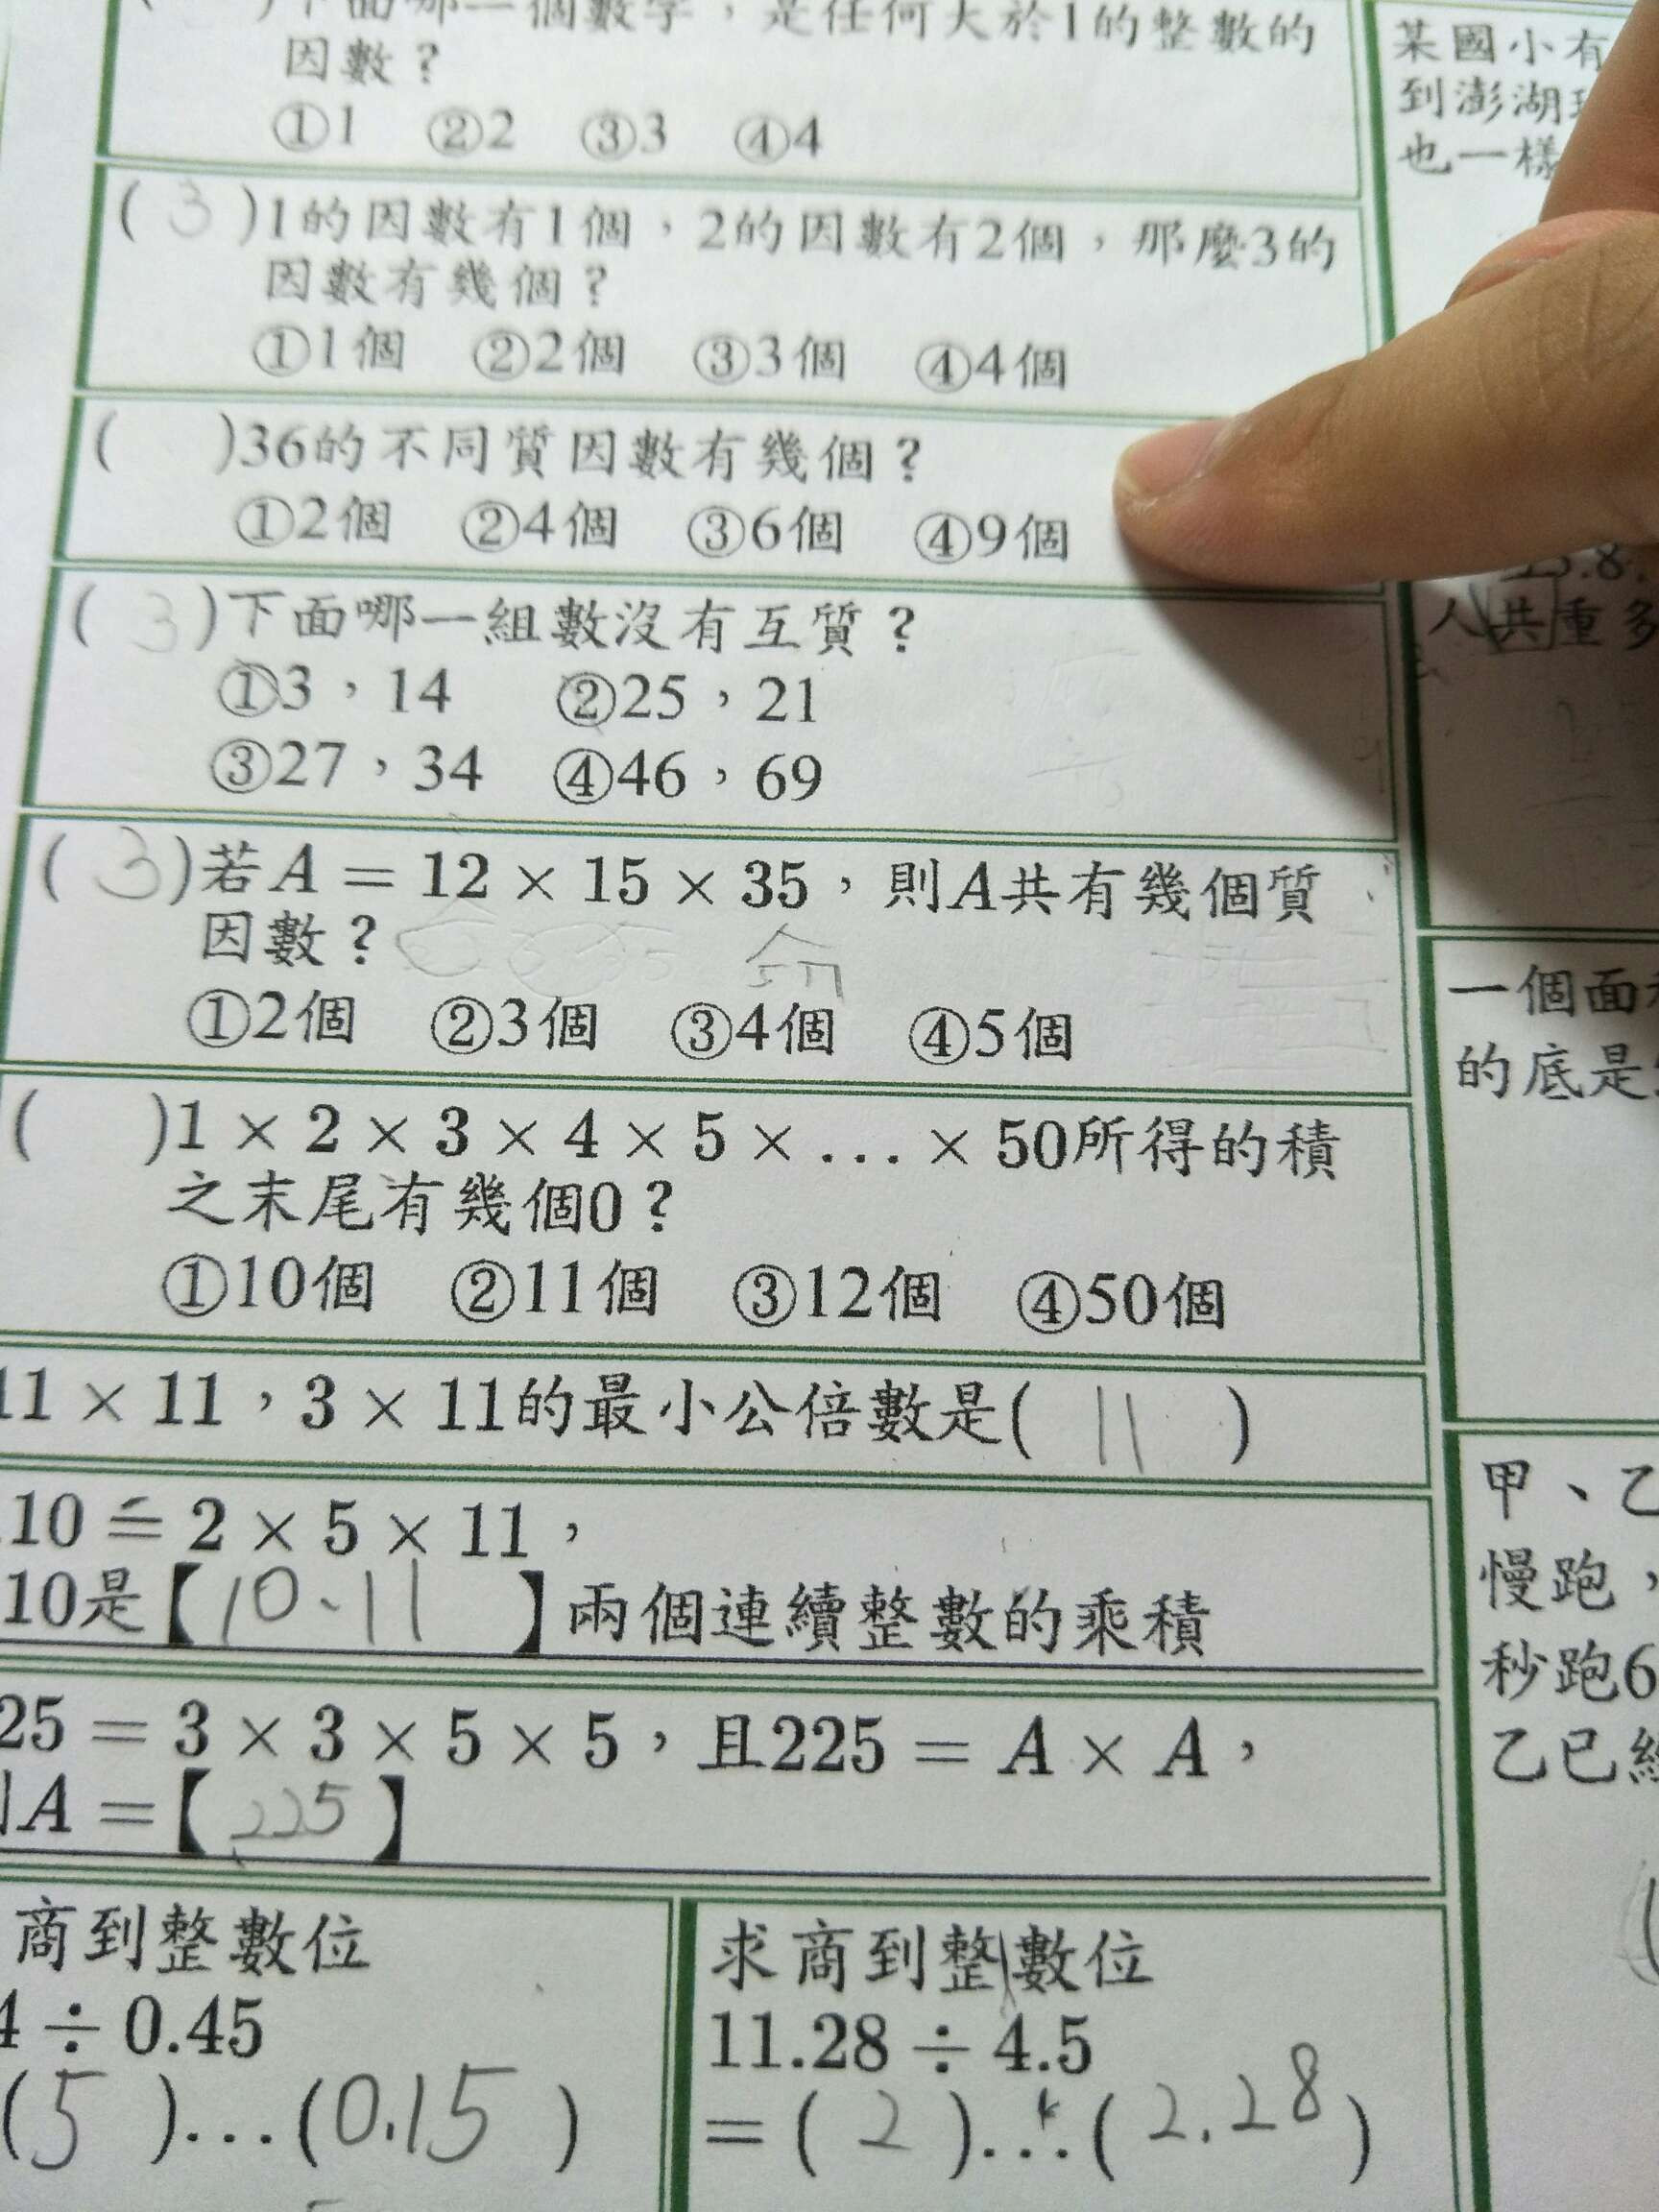 下面哪一個數字，是任何大於1的整數的
因數？
①1 ②2 ③3 ④4
( 3 )1的因數有1個，2的因數有2個，那麼3的
因數有幾個？
①1個 ②2個 ③3個 ④4個
( )36的不同質因數有幾個？
①2個 ②4個 ③6個 ④9個
( 3 )下面哪一組數沒有互質？
①3，14 ②25，21
③27，34 ④46，69
( 3 )若A = 12 × 15 × 35，則A共有幾個質
因數？
①2個 ②3個 ③4個 ④5個
( )1 × 2 × 3 × 4 × 5 × ... × 50所得的積
之末尾有幾個0？
①10個 ②11個 ③12個 ④50個
11 × 11，3 × 11的最小公倍數是( 11 )
10 = 2 × 5 × 11，
10是【10、11】兩個連續整數的乘積
25 = 3 × 3 × 5 × 5，且225 = A × A，
A =【225】
商到整數位
4 ÷ 0.45
(5)...(0.15)
求商到整數位
11.28 ÷ 4.5
= ( 2 )...( 2.28 )
某國小有
到澎湖
也一樣
人共重多
一個面
的底是
甲、乙
慢跑，
秒跑6
乙已